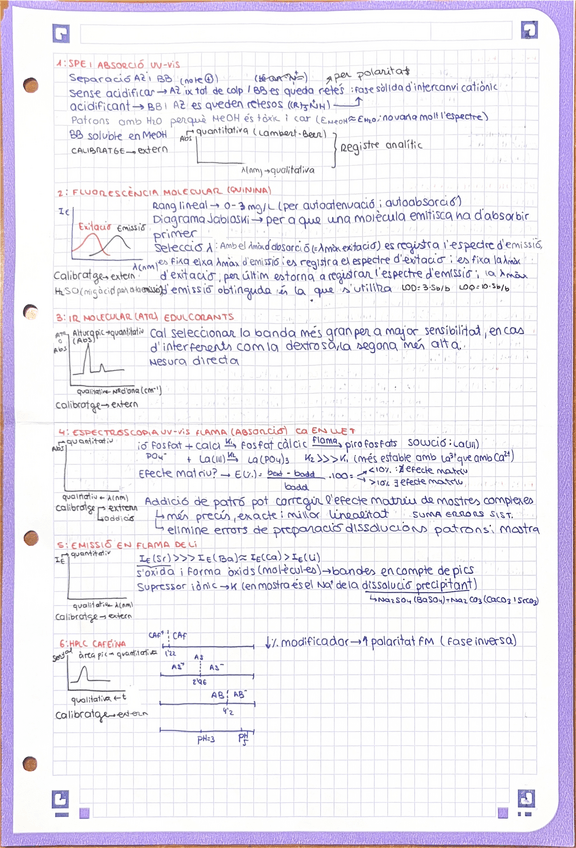 1: SPE i ABSORCIÓ UV-VIS
Separació AZ i BB (note @) per polaritat
Sense acidificar → AZ ix tot de colp / BB es queda retés : Fase sòlida d'intercanvi catiònic
acidificant → BB i AZ es queden retesos (
Patrons amb H2O perquè MeOH és tòxic i car (EMeOH ≈ EH2O; no varia molt l'espectre)
BB soluble en MeOH
CALIBRATGE → extern
Abs
quantitativa (Lambert-Beer)
λ(nm) → qualitativa
Registre analític
2: FLUORESCÈNCIA MOLECULAR (QUININA)
Rang lineal → 0-3 mg/L (per autoatenuació i autoabsorció)
Diagrama Jablonski → per a que una molècula emitisca ha d'absorbir
primer
Selecció λ: Amb el λmàx d'absorció (≈ λmàx exitació) es registra l'espectre d'emissió,
es fixa eixa λmàx d'emissió i es registra el espectre d'exitació i es fixa la λmàx
d'exitació, per últim es torna a registrar l'espectre d'emissió i la λmàx
d'emissió obtinguda és la que s'utilitza LOD = 3·Sb/b LOQ = 10·Sb/b
IE
Exitació Emissió
λ(nm)
Calibratge → extern
H2SO4
3: IR MOLECULAR (ATR) EDULCORANTS
Altura pic → quantitatiu
(Abs)
Abs
qualitatiu → Nº d'ona (cm⁻¹)
Calibratge → extern
Cal seleccionar la banda més gran per a major sensibilitat, en cas
d'interferents com la dextrosa, la segona més alta.
Mesura directa
4: ESPECTROSCOPIA UV-VIS FLAMA (ABSORCIÓ) Ca EN LLET
quantitatiu
Abs
qualitatiu ← λ(nm)
Calibratge → extern
addició
ió fosfat + calci K1→ fosfat càlcic Flama→ pirofosfats SOLUCIÓ: La(III)
PO4³⁻ + La(III) K2→ La(PO4)3 K2 >>> K1 (més estable amb La³⁺ que amb Ca²⁺)
Efecte matriu? → E(%) = bad - badd / badd · 100 =
<10% ∄ efecte matriu
>10% ∃ efecte matriu
Addició de patró pot corregir l'efecte matriu de mostres complexes
més precís, exacte i millor linealitat SUMA ERRORS SIST.
elimine errors de preparació dissolucions patrons i mostra
5: EMISSIÓ EN FLAMA DE Li
quantitatiu
IE
qualitatiu ← λ(nm)
Calibratge → extern
IE(Sr) >>> IE(Ba) ≈ IE(Ca) > IE(Li)
s'oxida i forma òxids (molècules) → bandes en compte de pics
Supressor iònic → K (en mostra és el Na⁺ de la dissolució precipitant)
Na2SO4 (BaSO4) + Na2CO3 (CaCO3 i SrCO3)
6: HPLC CAFEÏNA
Senyal
àrea pic → quantitatiu
qualitatiu ← t
Calibratge → extern
CAF⁺ CAF
1'22
AZ
AZ⁺ AZ⁻
2'96
AB AB⁻
4'2
pH=3
pH
5
↓% modificador → ↑ polaritat FM (fase inversa)